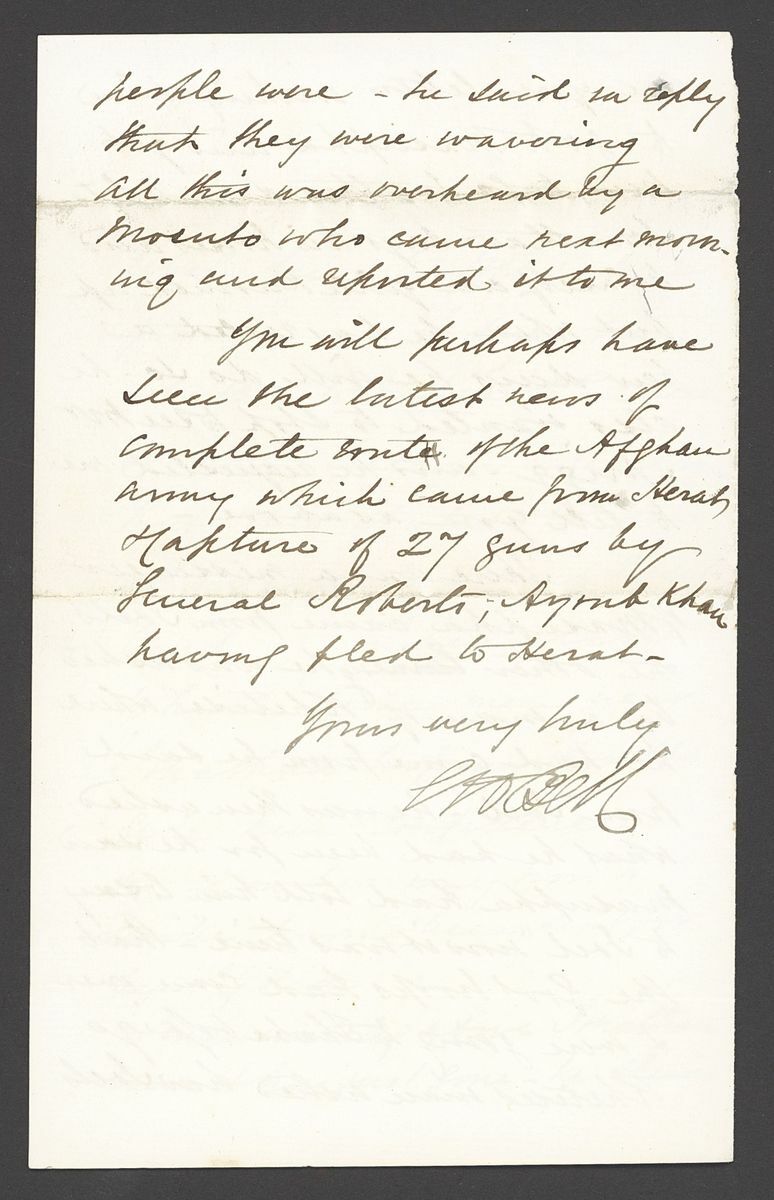 people were - he said in reply
that they were wavering
all this was overheard by a
Mosuto who came next morn-
ing and reported it to me
You will perhaps have
seen the latest news of
complete route of the Afghan
army which came from Herat
& capture of 27 guns by
General Roberts, Ayoub Khan
having fled to Herat -
Yours very truly
Bell